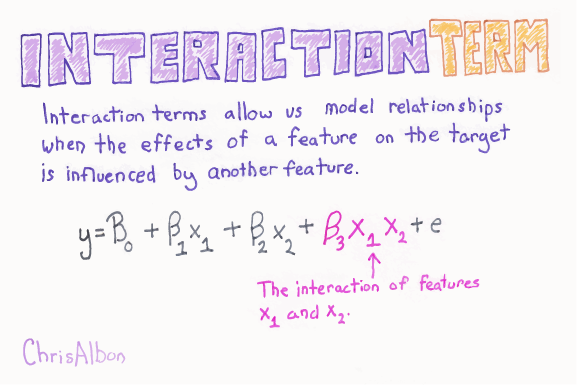 INTERACTION TERM
Interaction terms allow us model relationships
when the effects of a feature on the target
is influenced by another feature.
y=β₀ + β₁x₁ + β₂x₂ + β₃x₁x₂ + e
The interaction of features
x₁ and x₂.
ChrisAlbon